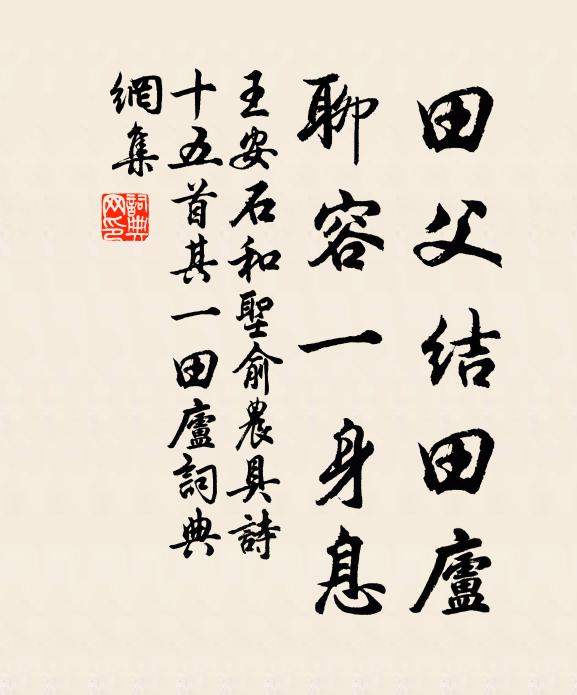 田父結田廬
聊容一身息
王安石和聖俞農具詩
十五首其一田廬詞典
網集
詞典網印